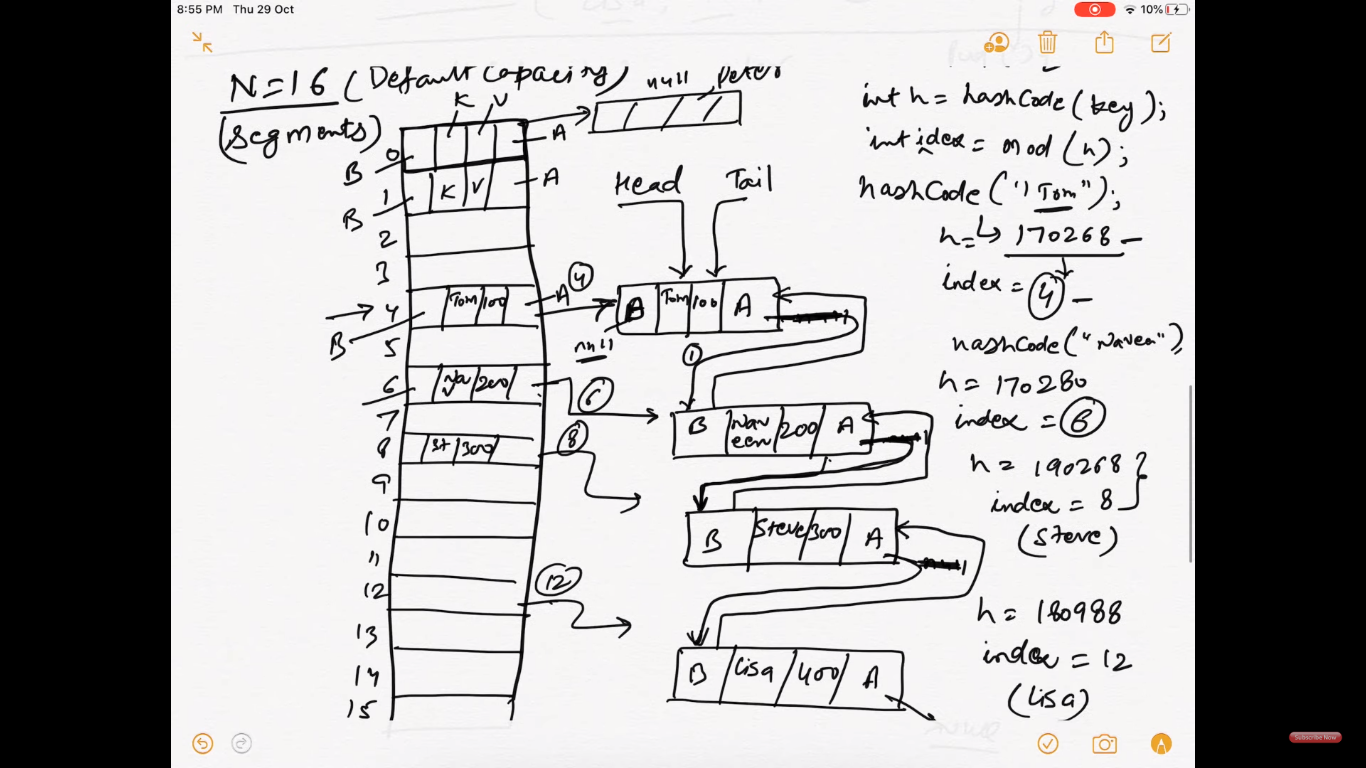 8:55 PM Thu 29 Oct
10%
N=16 (Default capacity)
(segments)
K V
null
A
B
0
1
B
K V
A
2
3
4
Tom 100
A
4
B
5
6
Na 200
6
7
8
St 300
8
9
10
11
12
12
13
14
15
Head Tail
A Tom 100 A
null
1
B Naveen 200 A
B Steve 300 A
B Lisa 400 A
int h = hashCode(key);
int idex = mod(n);
hashCode("Tom");
h = 170268
index = 4
hashCode("Naveen")
h = 170280
index = 6
h = 190268
index = 8
(Steve)
h = 180988
index = 12
(Lisa)
Subscribe Now